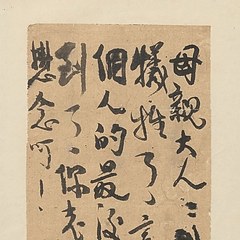 母親大人
犧牲了
個人的最後
到了你老
懸念